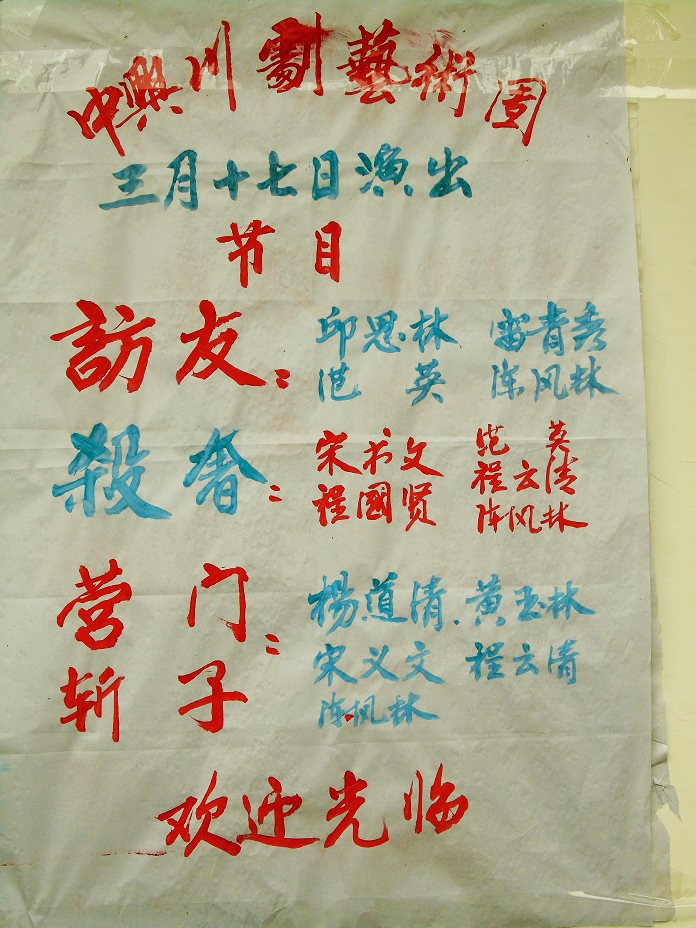 中興川劇藝術团
三月十七日演出
节目
訪友: 邱思林 雷青秀
范英 陈风林
殺奢: 宋书文 范英
程國贤 程云清
陈风林
营门
斩子: 楊道清.黄玉林
宋义文 程云清
陈风林
欢迎光临